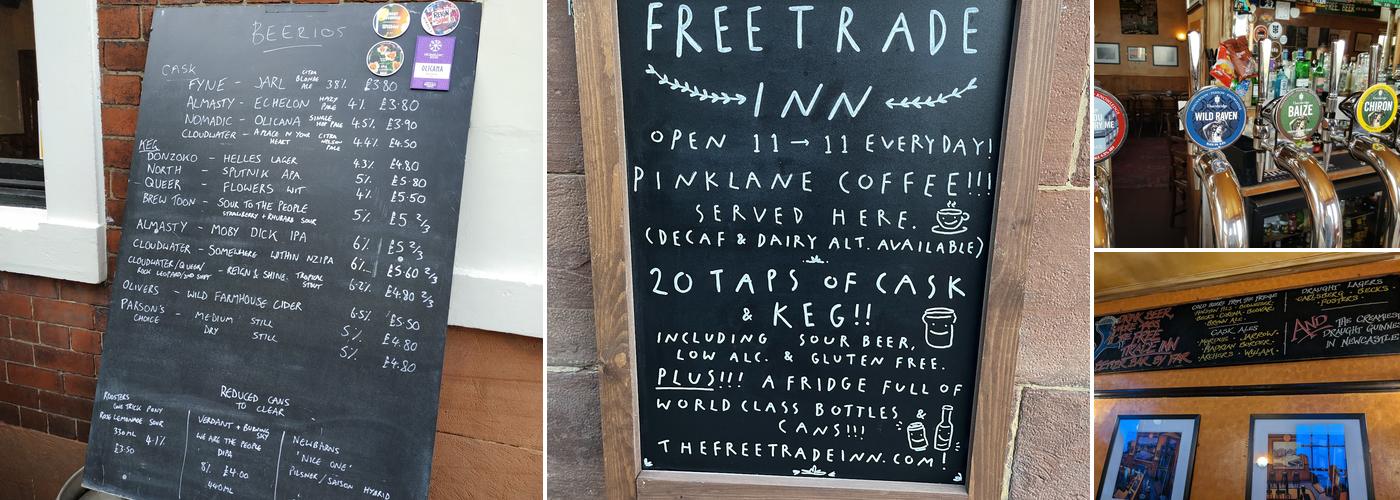 BEERIOS
CASK
FYNE - JARL CITRA BLONDE ALE 3.8% £3.80
ALMASTY - ECHELON HAZY PALE 4% £3.80
NOMADIC - OLICANA SINGLE HOP PALE 4.5% £3.90
CLOUDWATER - A PLACE IN YOUR HEART CITRA NELSON PALE 4.4% £4.50
KEG
DONZOKO - HELLES LAGER 4.3% £4.80
NORTH - SPUTNIK APA 5% £5.80
QUEER - FLOWERS WIT 4% £5.50
BREW TOON - SOUR TO THE PEOPLE 5% £5 2/3
STRAWBERRY + RHUBARB SOUR
ALMASTY - MOBY DICK IPA 6% £5 2/3
CLOUDWATER - SOMEWHERE WITHIN NZIPA 6% £5.60 2/3
CLOUDWATER/QUEER/ROCK LEOPARD/2ND SHIFT - REIGN & SHINE. TROPICAL STOUT 6.2% £4.80 2/3
OLIVERS - WILD FARMHOUSE CIDER 6.5% £5.50
PARSON'S CHOICE - MEDIUM STILL 5% £4.80
DRY STILL 5% £4.80
REDUCED CANS
TO CLEAR
ROOSTERS
ONE TRICK PONY
ROSE LEMONADE SOUR
330ML 4.1%
£3.50
VERDANT + BURNING SKY
WE ARE THE PEOPLE
DIPA
8% £4.00
440ML
NEWBARNS
'NICE ONE'
PILSNER/SAISON HYBRID
OLICANA
FREE TRADE
INN
OPEN 11 → 11 EVERYDAY!
PINKLANE COFFEE!!!
SERVED HERE.
(DECAF & DAIRY ALT. AVAILABLE)
20 TAPS OF CASK
& KEG!!
INCLUDING SOUR BEER,
LOW ALC. & GLUTEN FREE.
PLUS!!! A FRIDGE FULL OF
WORLD CLASS BOTTLES &
CANS!!!
THEFREETRADEINN.COM!
WILD RAVEN
BAIZE
CHIRON
DRINK BEER
FREE TRADE INN
BY FAR
CASK ALES
MORDUE · JARROW
HADRIAN BORDER
ARCHERS · WYLAM
DRAUGHT LAGERS
CARLSBERG · BECKS
FOSTERS
AND THE CREAMIEST
DRAUGHT GUINNESS
IN NEWCASTLE